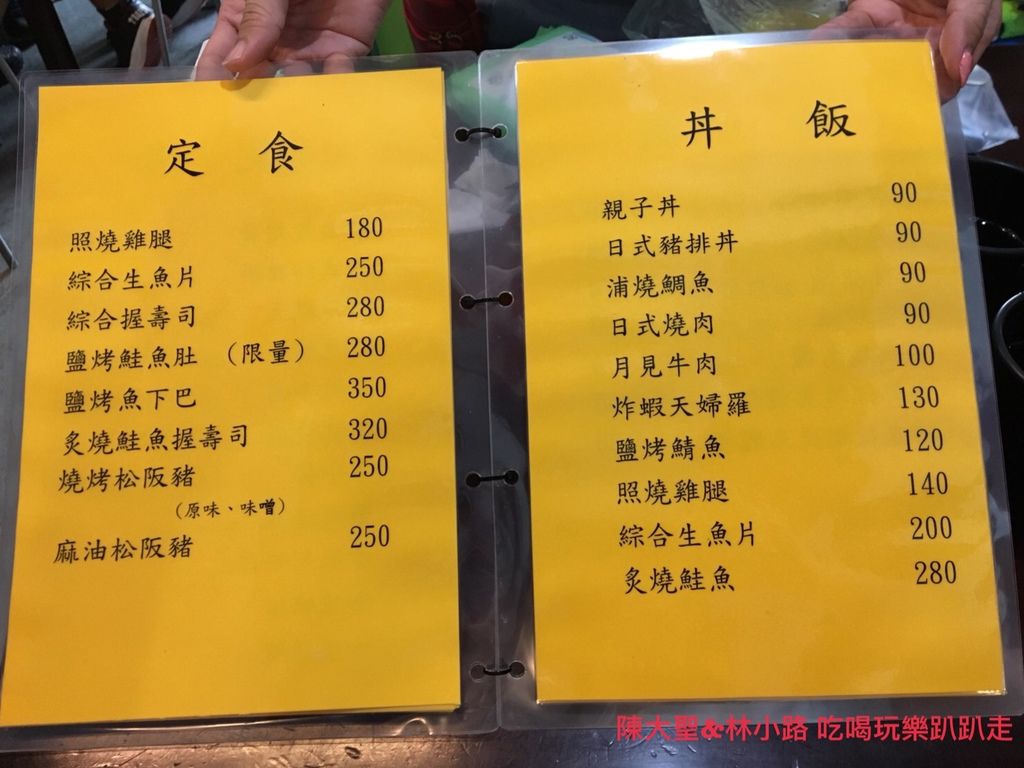 定食
照燒雞腿 180
綜合生魚片 250
綜合握壽司 280
鹽烤鮭魚肚 (限量) 280
鹽烤魚下巴 350
炙燒鮭魚握壽司 320
燒烤松阪豬 250
(原味、味噌)
麻油松阪豬 250
丼飯
親子丼 90
日式豬排丼 90
浦燒鯛魚 90
日式燒肉 90
月見牛肉 100
炸蝦天婦羅 130
鹽烤鯖魚 120
照燒雞腿 140
綜合生魚片 200
炙燒鮭魚 280
陳大聖&林小路 吃喝玩樂趴趴走